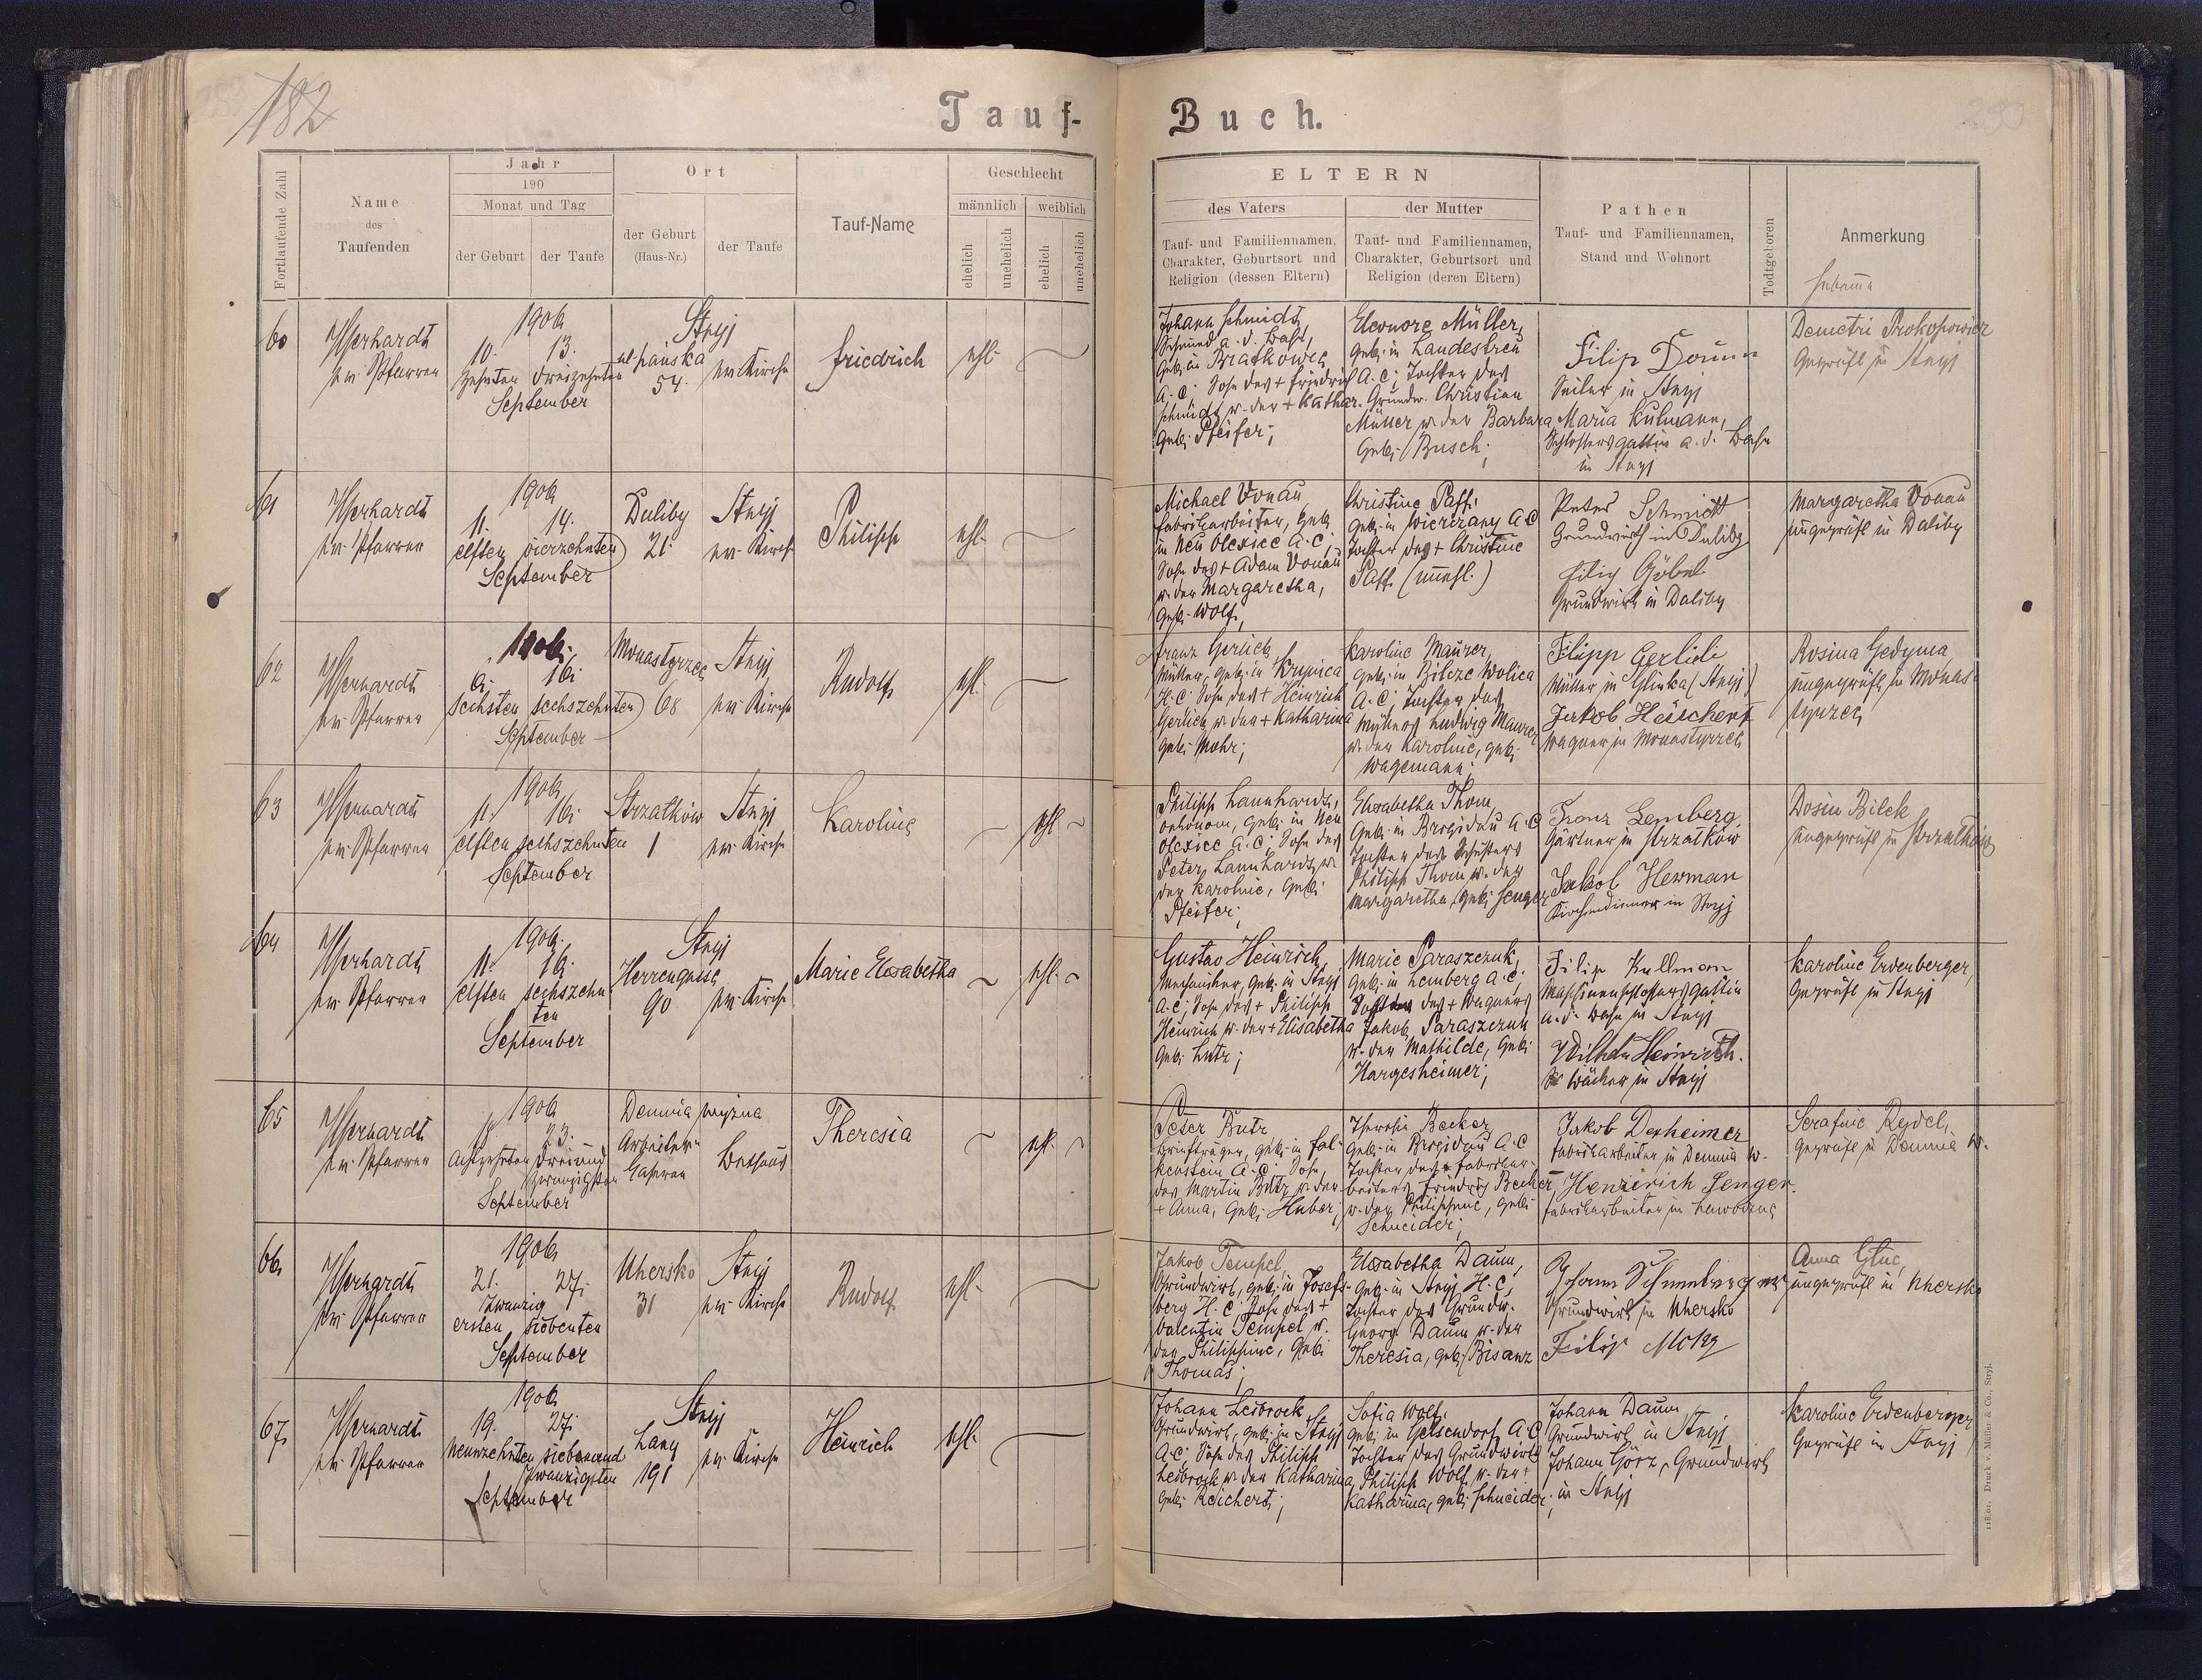 182
Tauf-
Buch.
Fortlaufende Zahl
Name
des
Taufenden
Jahr
190
Monat und Tag
der Geburt
der Taufe
Ort
der Geburt
(Haus-Nr.)
der Taufe
Tauf-Name
Geschlecht
männlich
weiblich
ehelich
unehelich
ehelich
unehelich
ELTERN
des Vaters
Tauf- und Familiennamen,
Charakter, Geburtsort und
Religion (dessen Eltern)
der Mutter
Tauf- und Familiennamen,
Charakter, Geburtsort und
Religion (deren Eltern)
Pathen
Tauf- und Familiennamen,
Stand und Wohnort
Todtgeboren
Anmerkung
60
ev. Pfarrer
1906
10. 13.
zehnten dreizehnten
September
Stryj
54.
ev. Kirche
Friedrich
ehl.
Johann Schmidt,
geb. in
A. C. Sohn des + Friedrich
Schmidt u. der + Kathar.
geb. Pfeifer;
Eleonore Müller,
geb. in Landestreu
A. C. Tochter des
Grundw. Christian
Müller u. der Barbara
geb. Busch;
Filip
Seiler in Stryj
Maria Kulmann,
Schlossersgattin a. d. Bahn
in Stryj
Demetri Prokopowicz
Geprüft in Stryj
61
ev. Pfarrer
1906
11. 14.
elften vierzehnten
September
Duliby
21.
Stryj
ev. Kirche
Philipp
ehl.
Michael Vonau
Fabriksarbeiter, geb.
in Neu Olexice A. C.
Sohn des + Adam Vonau
u. der Margaretha,
geb. Wolf,
Christine Paff.
geb. in Wierczany A. C.
Tochter der + Christine
Paff (unehl.)
Peter Schmidt
Grundwirth in Duliby
Filip Göbel
Grundwirt in Duliby
Margaretha Vonau
ungeprüft in Duliby
62
ev. Pfarrer
1906
6. 16.
sechsten sechszehnten
September
Monastyrzec
68
Stryj
ev. Kirche
Rudolf
ehl.
Franz Gerlich,
Müller, geb. in Krynica
H. C. Sohn des + Heinrich
Gerlich u. der + Katharina
geb. Mohr;
Karoline Maurer,
geb. in Bilcze Wolica
A. C. Tochter des
Müllers Ludwig Maurer
u. der Karoline, geb.
Wagemann;
Filipp Gerlich
Müller in Glinka (Stryj)
Jakob Heuchert
Wagner in Monastyrzec
Rosina Gedyma
ungeprüft in Monas-
tyrzec
63
ev. Pfarrer
1906
11. 16.
elften sechszehnten
September
Strzalkow
1
Stryj
ev. Kirche
Karoline
ehl.
Philipp Lannhardt,
Oekonom, geb. in Neu
Olexice A. C. Sohn des
Peter Lannhardt u.
der Karoline, geb.
Pfeifer;
Elisabetha Thom,
geb. in Brigidau A. C.
Tochter des Schusters
Philipp Thom u. der
Margaretha, geb. Senger
Franz Lemberg
Gärtner in Strzalkow
Jakob Herman
Kirchendiener in Stryj
Dosia Bilek
ungeprüft in Strzalkow
64
ev. Pfarrer
1906
11. 16.
elften sechszehn
ten
September
Stryj
Herrengasse
90
ev. Kirche
Marie Elisabetha
ehl.
Gustav Heinrich,
Mechaniker, geb. in Stryj
A. C. Sohn des + Philipp
Heinrich u. der + Elisabetha
geb. Lutz;
Marie Paraszczuk,
geb. in Lemberg A. C.
Tochter des + Wagners
Jakob Paraszczuk
u. der Mathilde, geb.
Hargesheimer;
Filip Kullman
Maschinenschlossersgattin
a. d. Bahn in Stryj
Wilhelm Heinrich.
Bäcker in Stryj
Karoline Erdenberger,
Geprüft in Stryj
65
ev. Pfarrer
1906
18. 23.
Achtzehnten Dreiund
zwanzigsten
September
Demnia wyzna
Arbeiter
Bethaus
Theresia
ehl.
Peter Butz
Briefträger, geb. in Fal-
kenstein A. C. Sohn
des Martin Butz u. der
+ Anna, geb. Huber,
Theresia Becker
geb. in Brigidau A. C.
Tochter des + Fabriksar-
beiters Friedrich Becker
u. der Philippine, geb.
Schneider;
Jakob Dexheimer
Fabriksarbeiter in Demnia w.
Heinrich Senger.
Fabriksarbeiter in Lawoczne
Serafine Rydel,
geprüft in Demnia w.
66
ev. Pfarrer
1906
21. 27.
zwanzig
ersten siebenten
September
Uhersko
31
Stryj
ev. Kirche
Rudolf
ehl.
Jakob Tempel,
Grundwirt, geb. in Josefs-
berg H. C. Sohn des +
Valentin Tempel u.
der Philippine, geb.
Thomas;
Elisabetha Daum,
geb. in Stryj H. C.,
Tochter des Grundw.
Georg Daum u. der
Theresia, geb. Bisanz
Johann
Grundwirt in Uhersko
Filip
Anna Gluc,
ungeprüft in Uhersko
67
ev. Pfarrer
1906
19. 27.
neunzehnten siebenund
zwanzigsten
September
Stryj
Lany
191
ev. Kirche
Heinrich
ehl.
Johann Leibrock
Grundwirt, geb. in Stryj
A. C. Sohn des Philipp
Leibrock u. der Katharina
geb. Reichert;
Sofia Wolf,
geb. in Gelsendorf A. C.
Tochter des Grundwirts
Philipp Wolf u. der +
Katharina, geb. Schneider;
Johann Daum
Grundwirt in Stryj
Johann Görz, Grundwirt
in Stryj
Karoline Erdenberger
Geprüft in Stryj
118.01. Druck v. Müller & Co., Stryj.